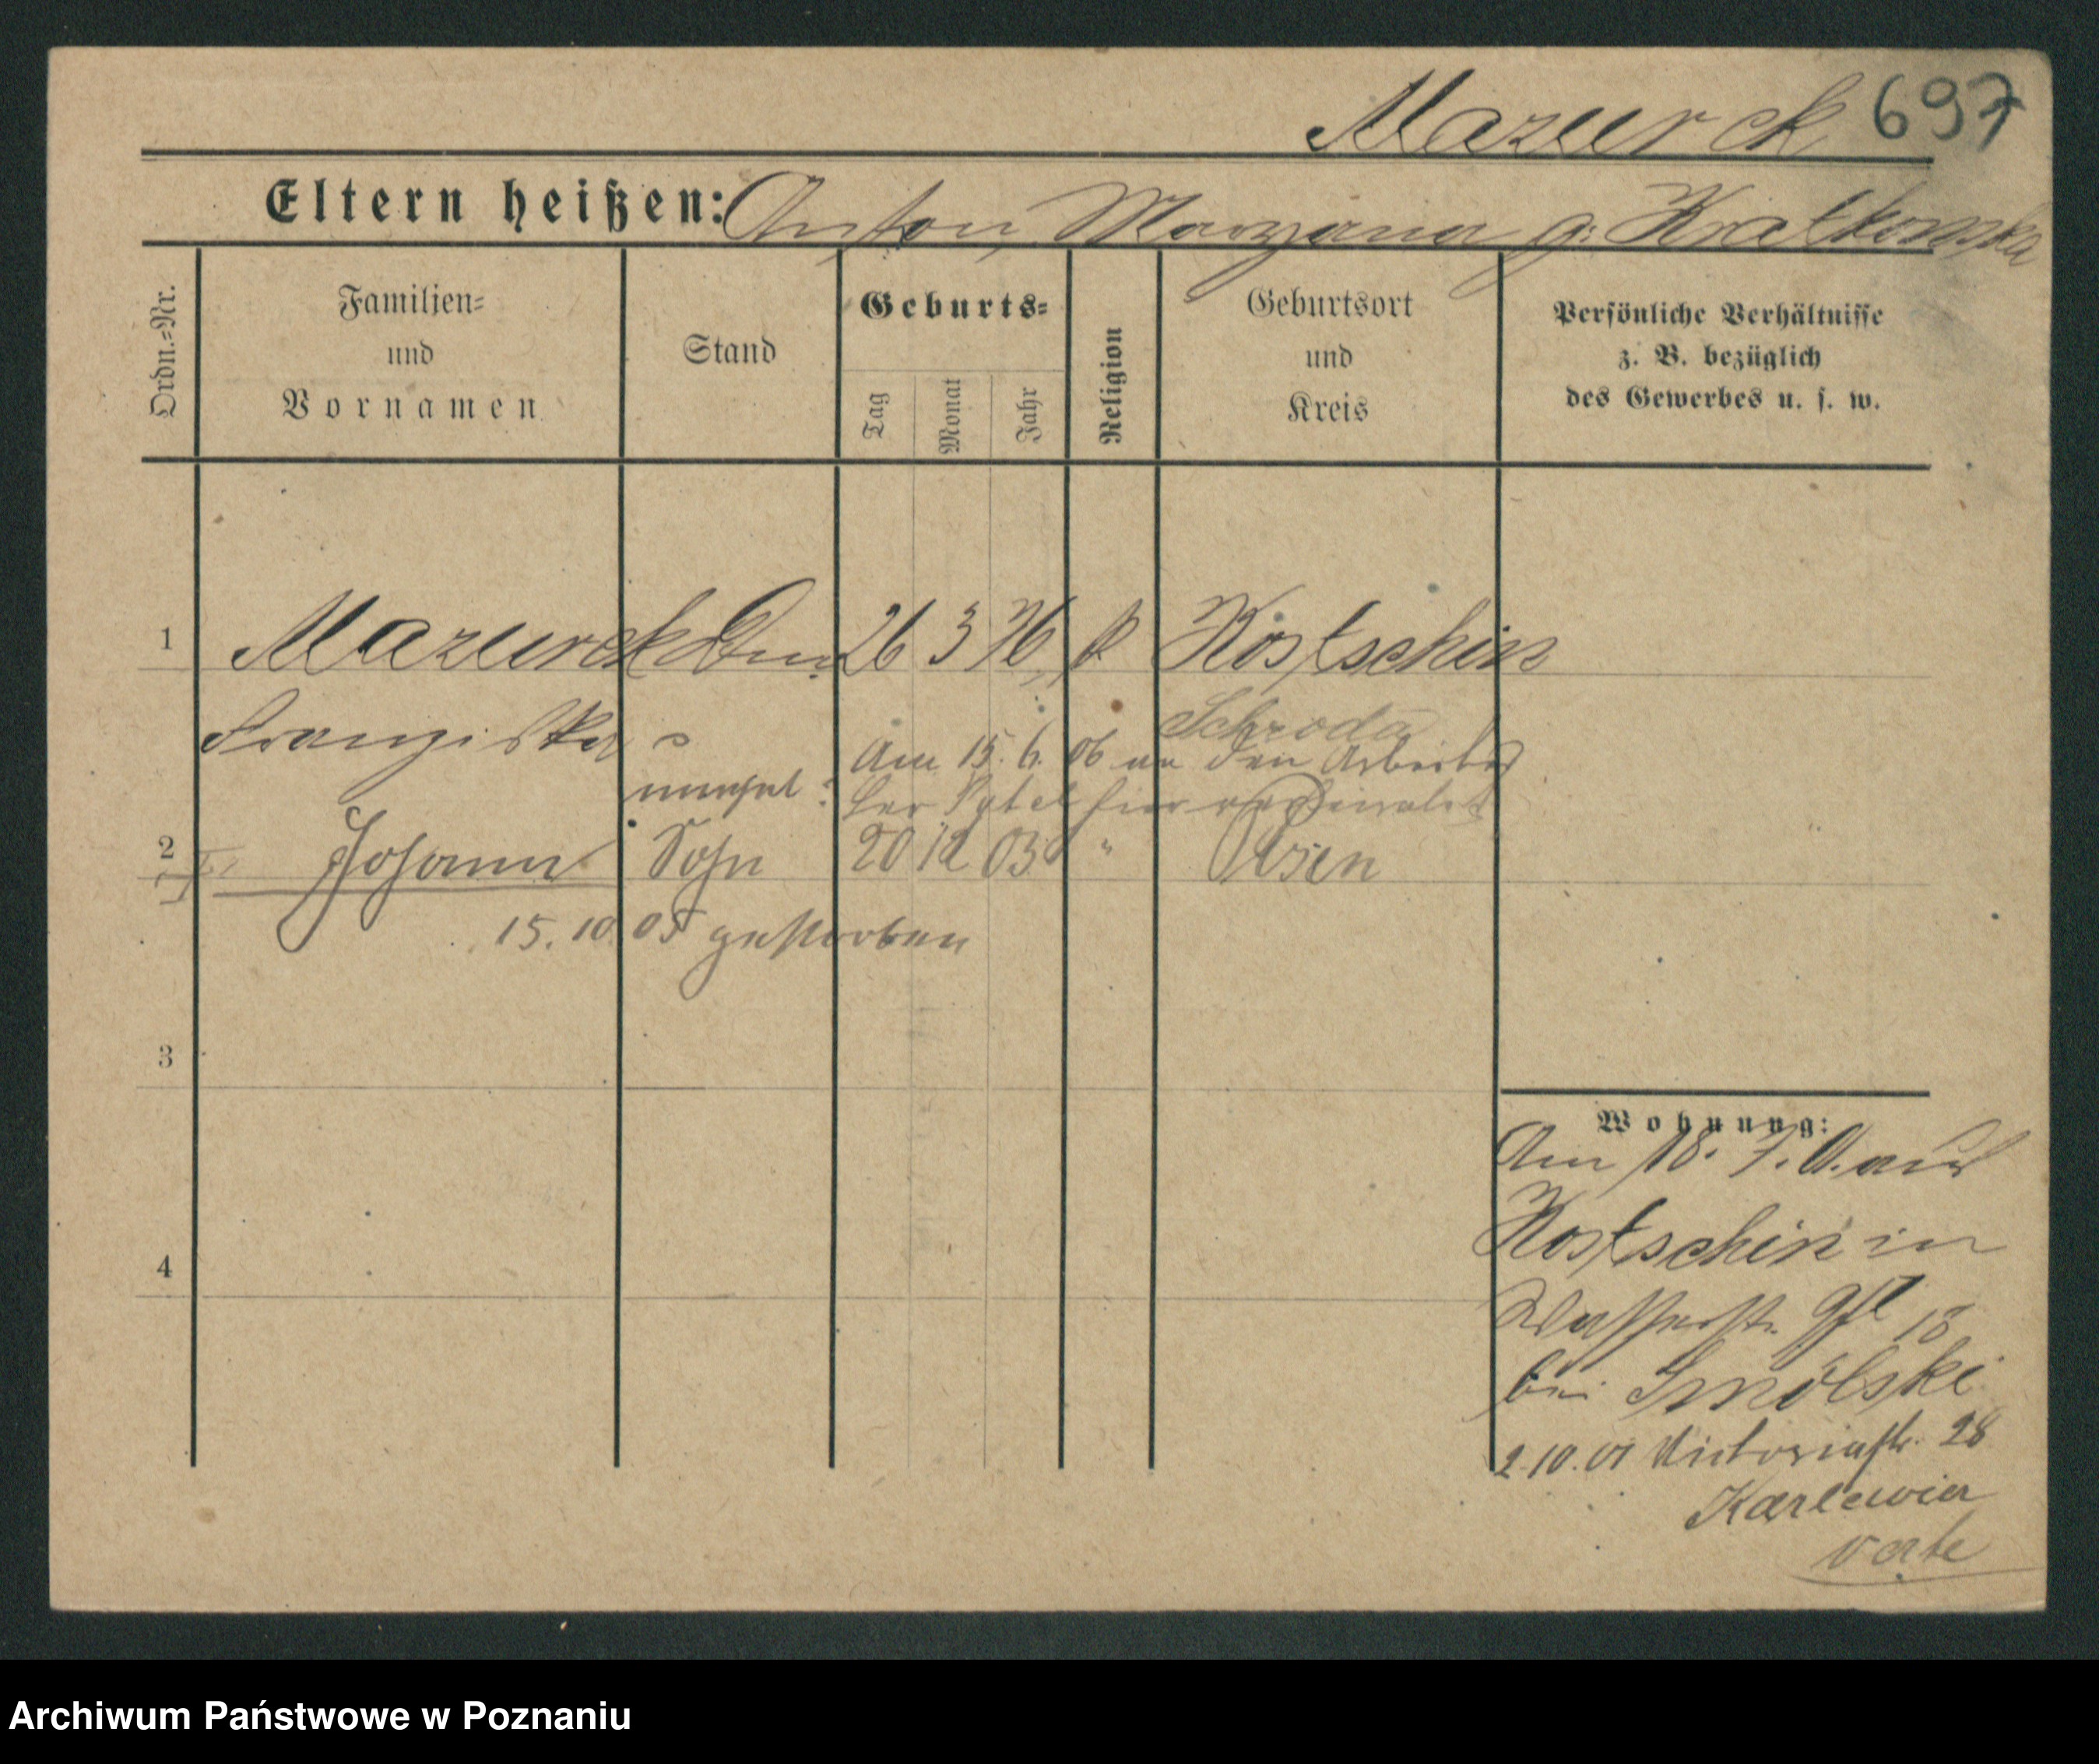 Mazurek 697
Eltern heißen: Anton, Maryanna g. Kratkowska
Ordn.=Nr.
Familien=
und
Vornamen
Stand
Geburts=
Tag
Monat
Jahr
Religion
Geburtsort
und
Kreis
Persönliche Verhältnisse
z. B. bezüglich
des Gewerbes u. s. w.
1 Mazurek 26 3 76 k Kostschin
Franziska Schroda
Am 15. 6. 06 an den Arbeiter
unehel: hier verheiratet
2 Johann Sohn 20 12 03 " Posen
15. 10 05 gestorben
3
4
Wohnung:
Am 18. 7. 01 aus
Kostschin in
Wasserstr. 18
bei Smolski
2.10.01 Victoriastr. 28
verte
Archiwum Państwowe w Poznaniu